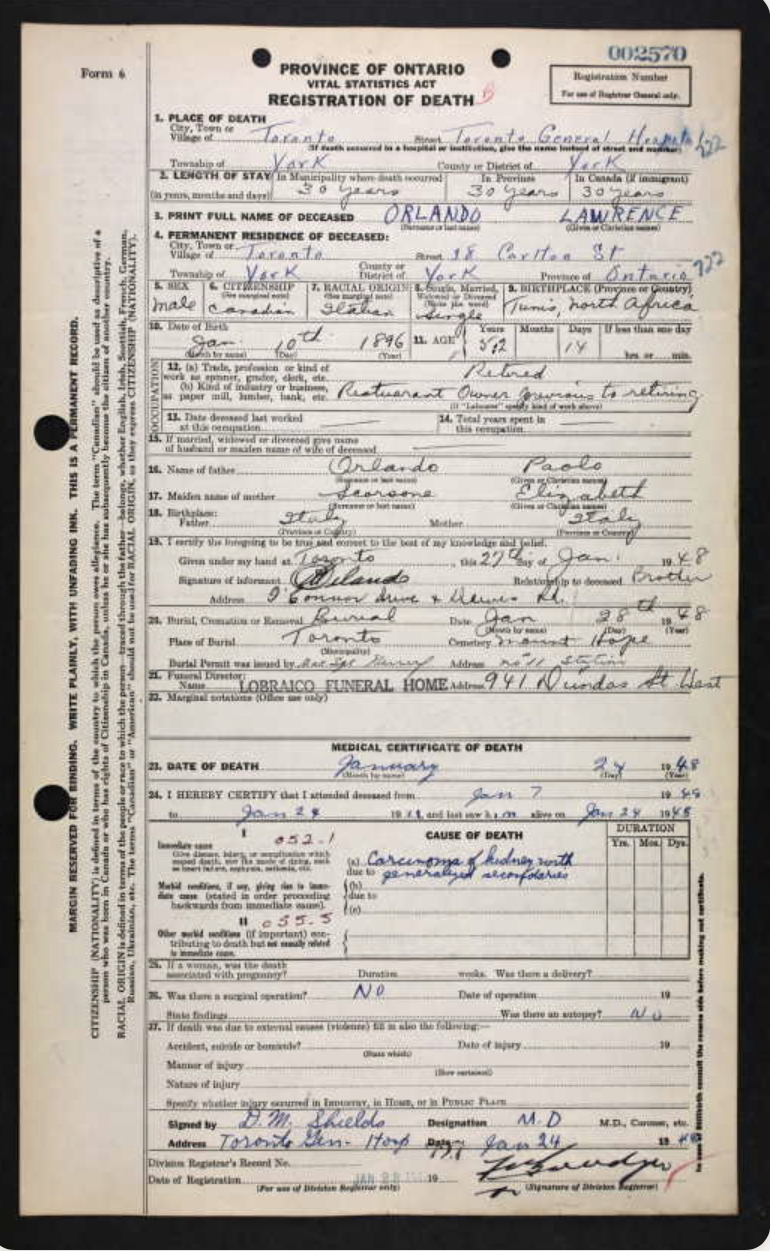 002570
Form 6
PROVINCE OF ONTARIO
VITAL STATISTICS ACT
REGISTRATION OF DEATH
Registration Number
For use of Registrar General only.
1. PLACE OF DEATH
City, Town or
Village of Toronto Street Toronto General Hospital
(If death occurred in a hospital or institution, give the name instead of street and number)
Township of York County or District of York
2. LENGTH OF STAY In Municipality where death occurred In Province In Canada (if immigrant)
(in years, months and days) 30 years 30 years 30 years
3. PRINT FULL NAME OF DECEASED ORLANDO LAWRENCE
(Surname or last name) (Given or Christian names)
4. PERMANENT RESIDENCE OF DECEASED:
City, Town or
Village of Toronto Street 18 Carlton St
Township of York County or District of York Province of Ontario
5. SEX 6. CITIZENSHIP 7. RACIAL ORIGIN 8. Single, Married, Widowed or Divorced 9. BIRTHPLACE (Province or Country)
(See marginal note) (See marginal note) (Write the word)
male Canadian Italian Single Tunis, North Africa
10. Date of Birth 11. AGE Years Months Days If less than one day
Jan. 10th 1896 14 hrs. or min.
(Month by name) (Day) (Year)
OCCUPATION
12. (a) Trade, profession or kind of
work as spinner, grader, clerk, etc. Retired
(b) Kind of industry or business,
as paper mill, lumber, bank, etc. Restuarant Owner previous to retiring
(If "Labourer" specify kind of work above)
13. Date deceased last worked 14. Total years spent in
at this occupation. this occupation.
15. If married, widowed or divorced give name
of husband or maiden name of wife of deceased
16. Name of father Orlando Paolo
(Surname or last name) (Given or Christian names)
17. Maiden name of mother Scarsone Elizabeth
(Surname or last name) (Given or Christian names)
18. Birthplace:
Father Italy Mother Italy
(Province or Country) (Province or Country)
19. I certify the foregoing to be true and correct to the best of my knowledge and belief.
Given under my hand at Toronto, this 27th day of Jan. 1948
Signature of informant Orlando Relationship to deceased Brother
Address O'Connor Drive & Dawes Rd.
20. Burial, Cremation or Removal Burial Date Jan 28th 1948
(Month by name) (Day) (Year)
Place of Burial Toronto Cemetery Mount Hope
(Municipality)
Burial Permit was issued by Address No 11 Station
21. Funeral Director:
Name LOBRAICO FUNERAL HOME Address 941 Dundas St. West
22. Marginal notations (Office use only)
MEDICAL CERTIFICATE OF DEATH
23. DATE OF DEATH January 24 1948
(Month by name) (Day) (Year)
24. I HEREBY CERTIFY that I attended deceased from Jan 7 1948
to Jan 24 19 and last saw him alive on Jan 24 1948
CAUSE OF DEATH DURATION
Yrs. Mos. Dys.
I 052.1
Immediate cause
Give disease, injury, or complication which
caused death, not the mode of dying, such
as heart failure, asphyxia, asthenia, etc.
(a) Carcinoma of kidney with
due to generalized secondaries
Morbid conditions, if any, giving rise to immediate
cause (stated in order proceeding
backwards from immediate cause).
(b)
due to
(c)
II 055.5
Other morbid conditions (if important) contributing
to death but not causally related
to immediate cause.
25. If a woman, was the death
associated with pregnancy? Duration weeks. Was there a delivery?
26. Was there a surgical operation? NO Date of operation 19
State findings Was there an autopsy? No
27. If death was due to external causes (violence) fill in also the following:—
Accident, suicide or homicide? Date of injury 19
(State which)
Manner of injury
(How sustained)
Nature of injury
Specify whether injury occurred in INDUSTRY, in HOME, or in PUBLIC PLACE
Signed by D.M. Shields Designation M.D M.D., Coroner, etc.
Address Toronto Gen- Hosp Date Jan 24 1948
Division Registrar's Record No.
Date of Registration JAN 28 19
(For use of Division Registrar only) (Signature of Division Registrar)
MARGIN RESERVED FOR BINDING. WRITE PLAINLY, WITH UNFADING INK. THIS IS A PERMANENT RECORD.
CITIZENSHIP (NATIONALITY) is defined in terms of the country to which the person owes allegiance. The term "Canadian" should be used as descriptive of a
person who was born in Canada or who has rights of Citizenship in Canada, unless he or she has subsequently become the citizen of another country.
RACIAL ORIGIN is defined in terms of the people or race to which the person—traced through the father—belongs, whether English, Irish, Scottish, French, German,
Russian, Ukrainian, etc. The terms "Canadian" or "American" should not be used for RACIAL ORIGIN, as they express CITIZENSHIP (NATIONALITY).